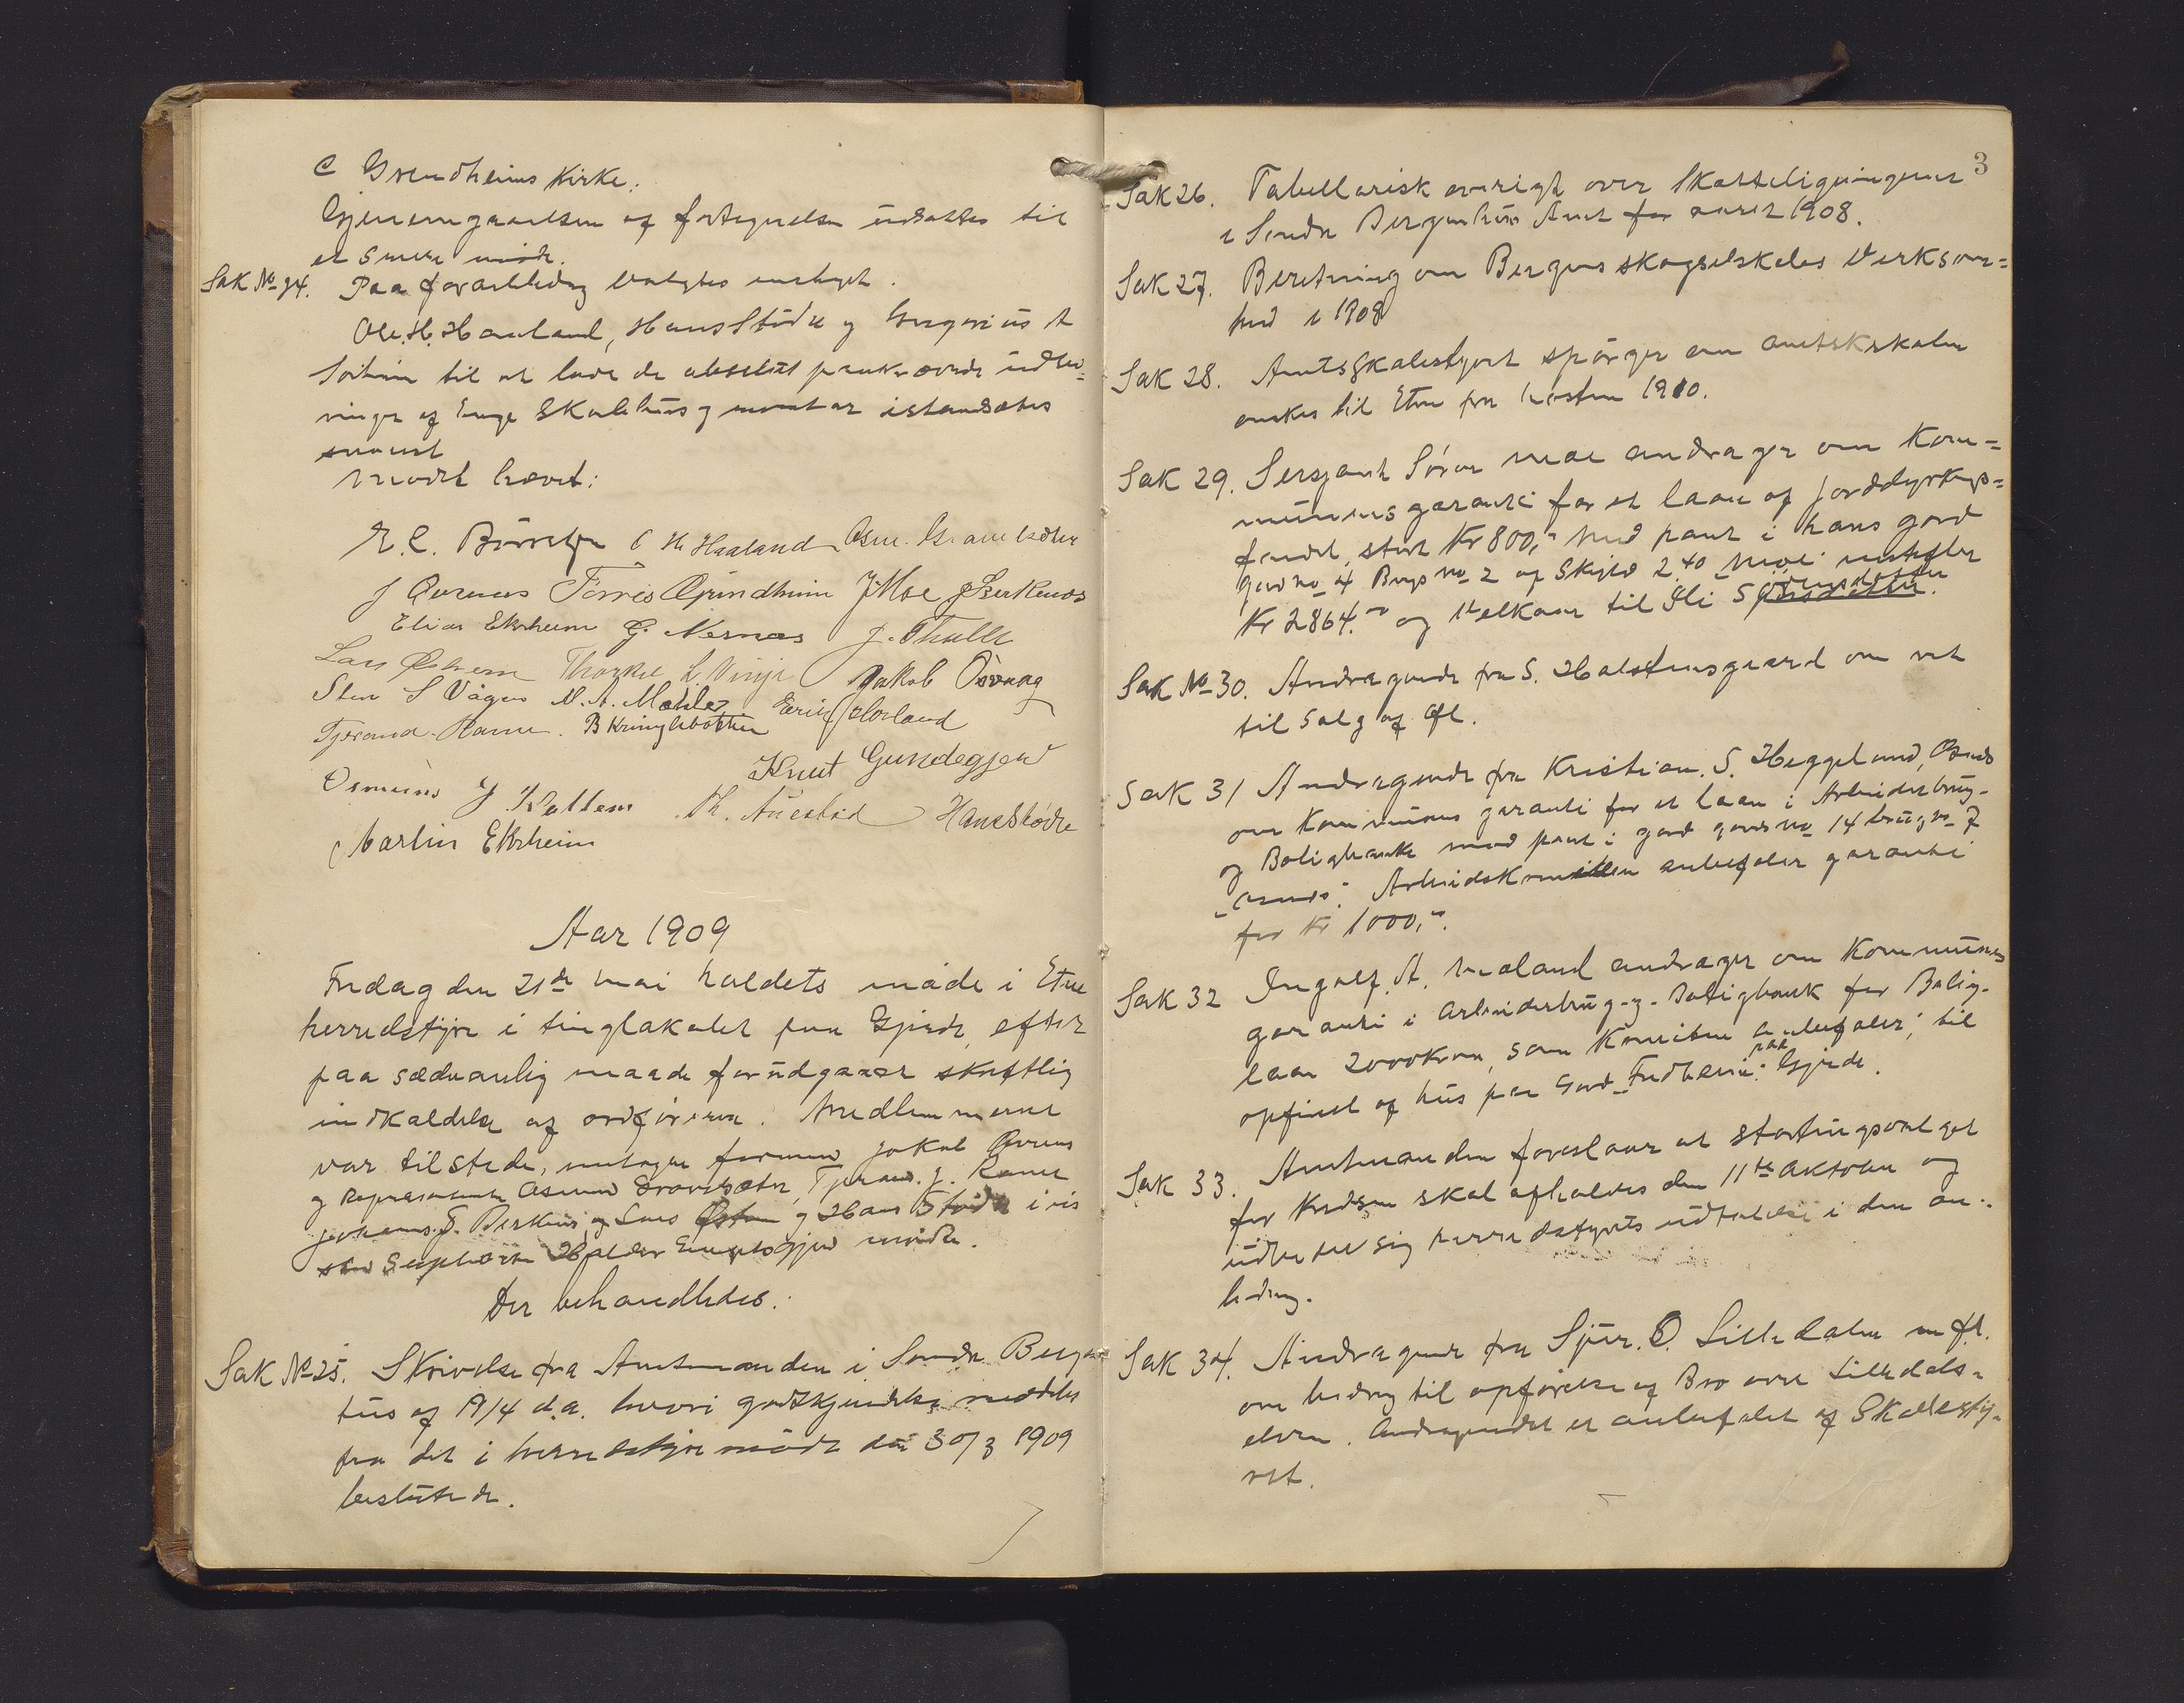 C Grindheims Kirke.
Gjennemgaaelsen af fortegnelsen udsattes til
et senere møde.
Sak No 24. Paa foranledning valgtes enstemt.
Ole. H. Haaland, Hans Stödle og Gregorius A
til at lade de absolut paakrævede udbed=
ringer af Enge Skolehus og murat istandsættes
snarest
Mödet hævet:
E. C. Börretzen O H Haaland Asm. Gravelsæter
J Qvrenes Torris Grindheim J Moe J Berkenes
Elias Ekrheim G. Nernæs J. Thulle
Lars Østrem Thorkel L. Vinje Jakob Osvaag
Sten S Vågen N. A. Mæhler Eerik Holland
Tjerand Ramn. B Kringlebotten
Knut Gundegjerd
Osmund J Kallem Th. Auestad Hans Stödle
Martin Ekrheim
Aar 1909
Fredag den 21de mai holdets möde i Etne
herredstyre i tinglokalet paa Gjerde, efter
paa sædvanlig maade forudgaaet skriftlig
indkaldelse af ordföreren. Medlemmerne
var tilstede, undtagen formend Jakob Qvrenes
og Repræsentanterne Asmund Gravelsæter, Tjerand. J. Ramn
Johannes. J. Berkenes og Lars Østrem og Hans Stödle i vis
sted Suppleant Halldor mödte.
Der behandledes:
Sak No 25. Skrivelse fra Amtmanden i Søndre Bergen
hus af 19/4 d.a. hvori godkjendelse meddeles
paa det i herredstyremöde den 30/3 1909
besluttede.
3
Sak 26. Tabellarisk oversigt over Skatteligningerne
i Søndre Bergenhus Amt for aaret 1908.
Sak 27. Beretning om Bergens skogselskabs Verksom=
hed i 1908
Sak 28. Amtsskolestyret spörger om amtsskolen
ønskes til Etne fra høsten 1910.
Sak 29. Sersjant Sören Moe andrager om Kom=
munens garanti for et laan af jorddyrknings=
fondet, stort Kr 800,- Med pant i hans gard
Gard no 4 Brugs no 2 af Skyld 2.40 "Moe"
Kr 2864.- og Velkaar til Eli Sjursdatter.
Sak No 30. Andragende fra S. Halsteinsgaard om ret
til salg af Øl.
Sak 31 Andragende fra Kristian. S. Heggelund, Osnes
om Kommunens garanti for et laan i Arbeiderbrug-
og Boligbanken mod pant i gard gards no 14 brugs no 7
"Osnes". Arbeidskomiteen anbefaler garanti
for Kr 1000,-.
Sak 32 Ingolf. A. Mæland andrager om Kommunens
garanti i Arbeiderbrug-og-Boligbank for Bolig-
laan 2000 Kroner, som Komiteen anbefaler; til
opførsel af hus paa Gard "Fredheim" paa Gjerde.
Sak 33. Amtmanden foreslaar at stortingsvalget
for Kredsen skal afholdes den 11te Oktober og
udbeder sig herredstyrets udtalelse i den an-
ledning.
Sak 34. Andragende fra Sjur. O. Lilledalen m fl.
om bidrag til opførelse af Bro over Lilledals-
elven. Andragendet er anbefalet af Skolesty-
ret.